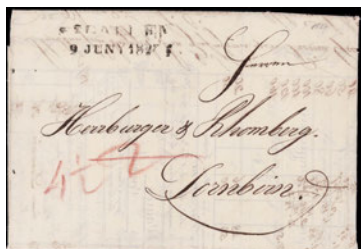 9 JUNY 182
Herren
Herrburger & Rhomberg.
Dornbirn.